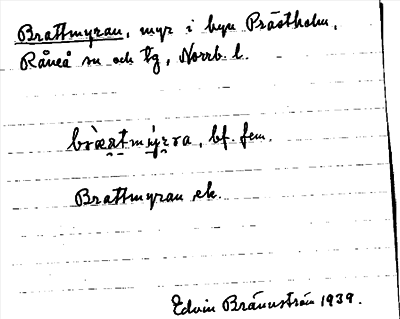 Brattmyran, myr i byn Prästholm,
Råneå sn och tg, Norrb. l.
bf. fem.
Brattmyran ek.
Edvin Brännström 1939.